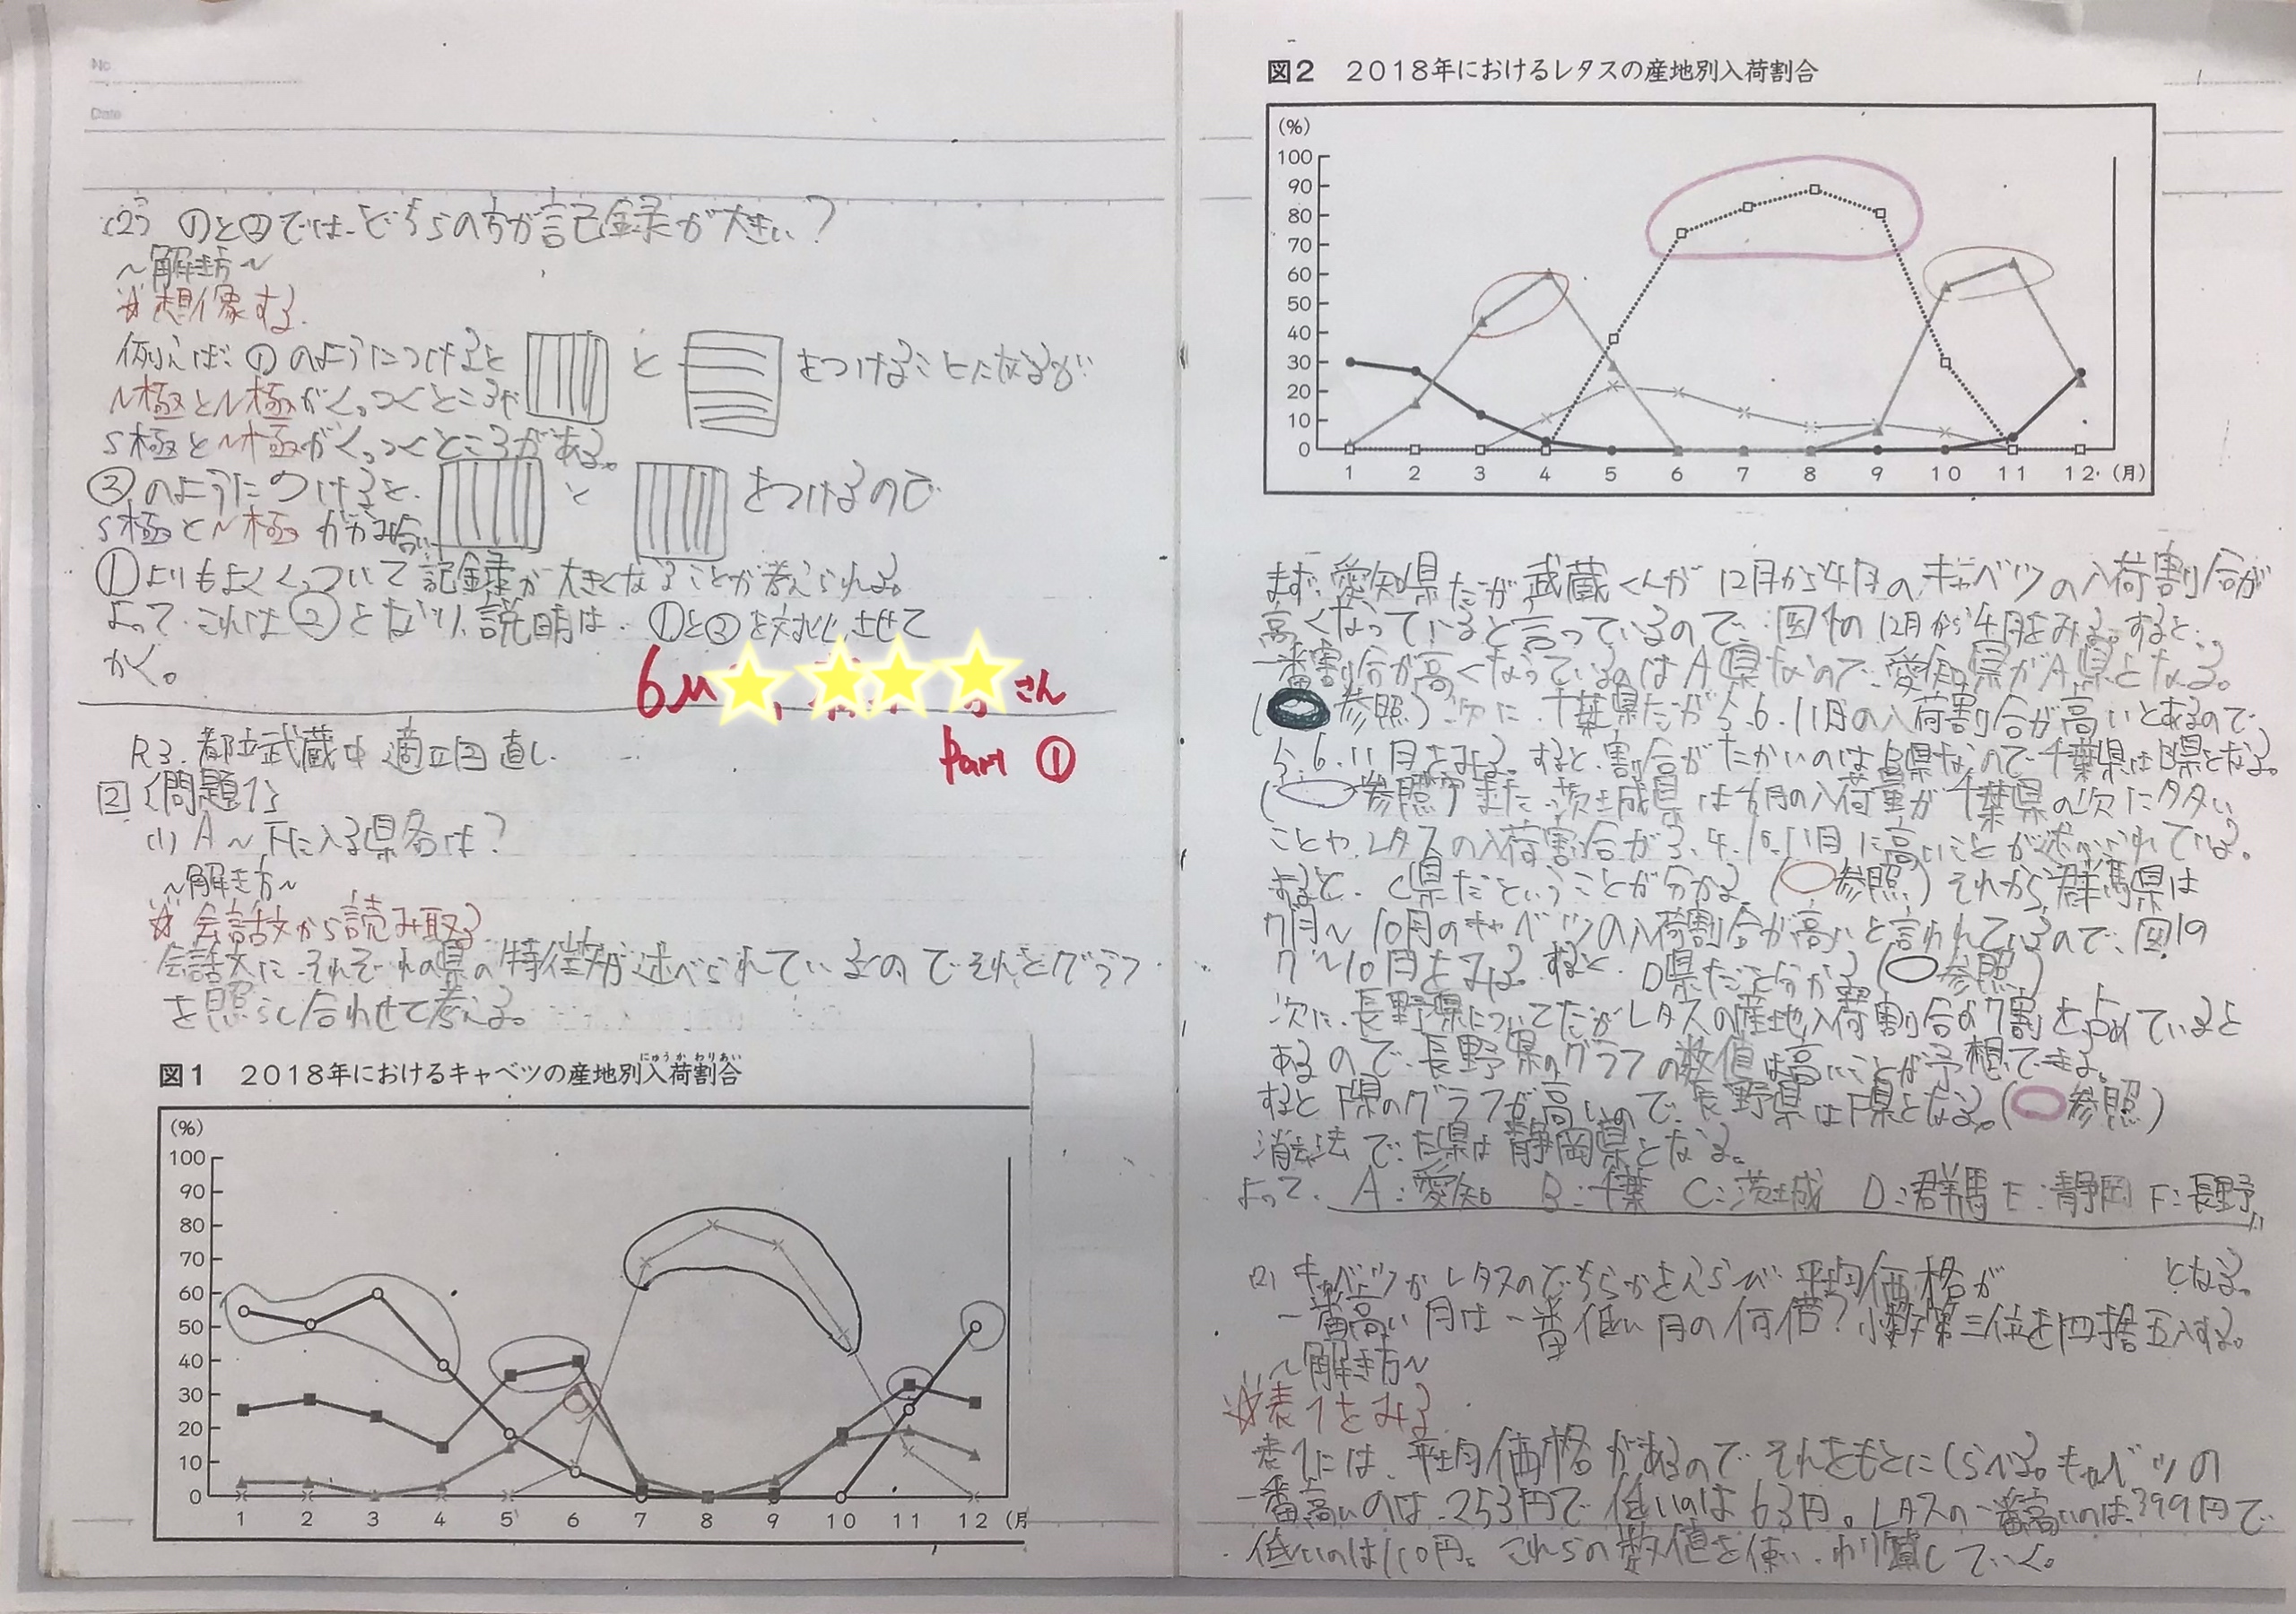 No.
Date
(2) ①と②では、どちらの方が記録が大きい?
～解き方～
☆想像する
例えば、①のようにつけると と をつけることになるが
N極とN極がくっつくところや
S極とN極がくっつくところがある。
②のようにつけると、 と をつけるので
S極とN極が
①よりもよくくっついて記録が大きくなることが考えられる。
よって、これは②となり、説明は、①と②を対比させて
かく。
さん
Part ①
R3.都立武蔵中 適性 直し
2〈問題1〉
(1) A～Fに入る県名は?
～解き方～
☆会話文から読み取る
会話文に、それぞれの県の特徴が述べられているのでそれとグラフ
を照らし合わせて考える。
図1 2018年におけるキャベツの産地別入荷割合
にゅう か わりあい
(%)
100
90
80
70
60
50
40
30
20
10
0
1 2 3 4 5 6 7 8 9 10 11 12 (月
図2 2018年におけるレタスの産地別入荷割合
(%)
100
90
80
70
60
50
40
30
20
10
0
1 2 3 4 5 6 7 8 9 10 11 12 (月)
まず、愛知県だが武蔵くんが12月から4月のキャベツの入荷割合が
高くなっていると言っているので、図1の12月から4月をみる。すると、
一番割合が高くなっているのはA県なので、愛知県がA県となる。
(参照) 次に、千葉県だが5、6、11月の入荷割合が高いとあるので
5、6、11月をみる。すると、割合がたかいのはB県なので千葉県はB県となる。
(参照) また、茨城県は6月の入荷量が千葉県の次に多い
ことや、レタスの入荷割合が3、4、10、11月に高いことが述べられている。
すると、C県だということが分かる。(参照) それから群馬県は
7月～10月のキャベツの入荷割合が高いと言われているので、図1の
7～10月をみる。すると、D県だと分かる(参照)
次に、長野県についてだがレタスの産地入荷割合の7割を占めていると
あるので、長野県のグラフの数値は高いことが予想できる。
するとF県のグラフが高いので、長野県はF県となる。(参照)
消去法で、E県は静岡県となる。
よって、A:愛知 B:千葉 C:茨城 D:群馬 E:静岡 F:長野
(2) キャベツかレタスのどちらかをえらび平均価格が となる。
一番高い月は一番低い月の何倍?小数第三位を四捨五入する。
～解き方～
☆表1をみる
表1には、平均価格があるのでそれをもとにくらべる。キャベツの
一番高いのは、253円で低いのは63円。レタスの一番高いのは、399円で
低いのは110円。これらの数値を使い、わり算していく。